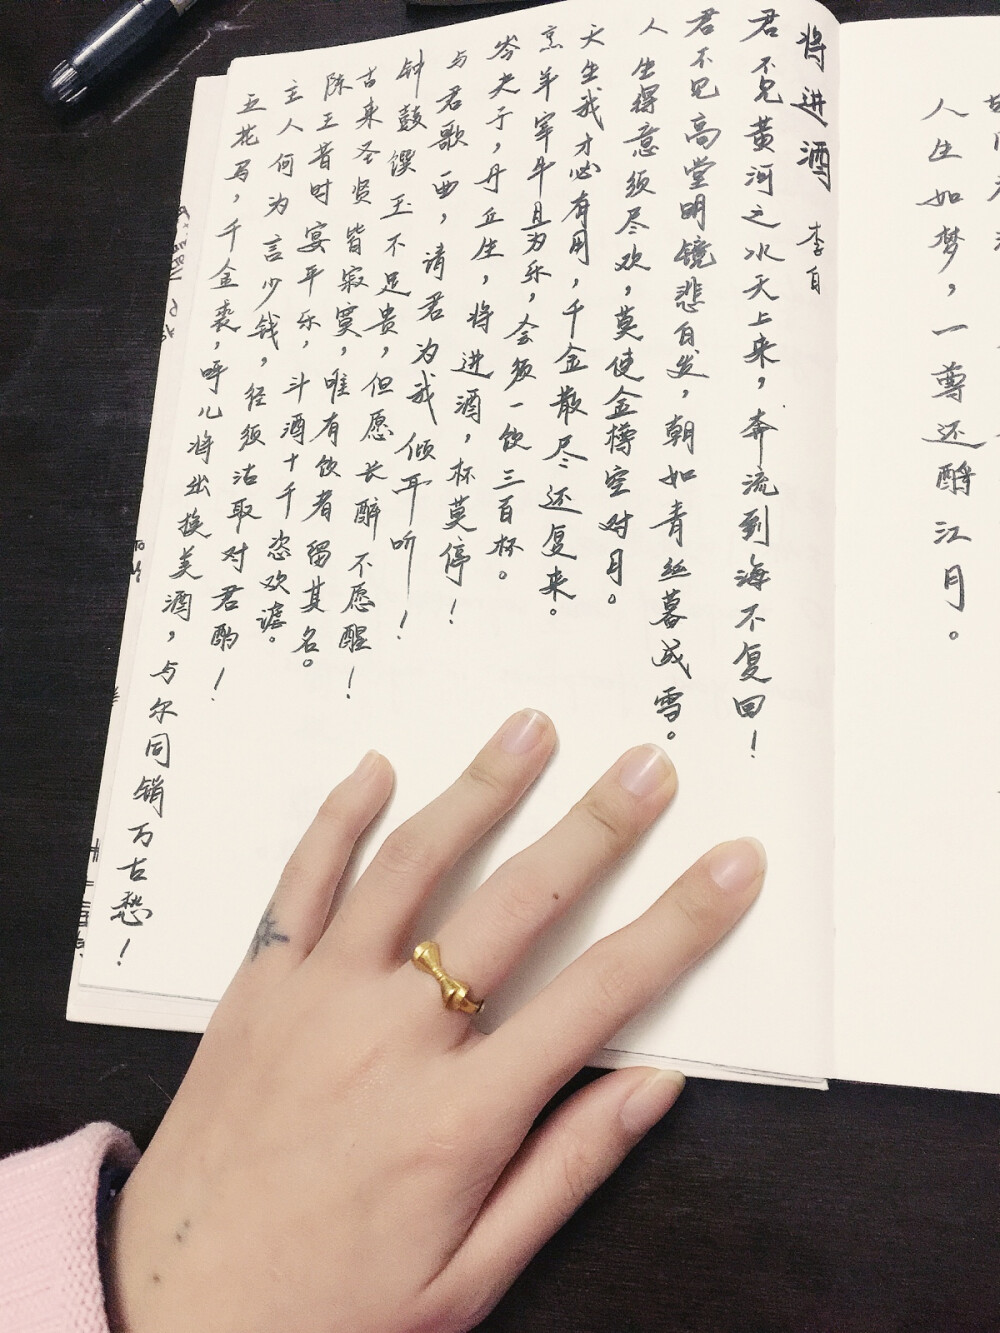 人生如梦，一尊还酹江月。
将进酒 李白
君不见黄河之水天上来，奔流到海不复回！
君不见高堂明镜悲白发，朝如青丝暮成雪。
人生得意须尽欢，莫使金樽空对月。
天生我才必有用，千金散尽还复来。
烹羊宰牛且为乐，会须一饮三百杯。
岑夫子，丹丘生，将进酒，杯莫停！
与君歌一曲，请君为我倾耳听！
钟鼓馔玉不足贵，但愿长醉不愿醒！
古来圣贤皆寂寞，唯有饮者留其名。
陈王昔时宴平乐，斗酒十千恣欢谑。
主人何为言少钱，径须沽取对君酌！
五花马，千金裘，呼儿将出换美酒，与尔同销万古愁！